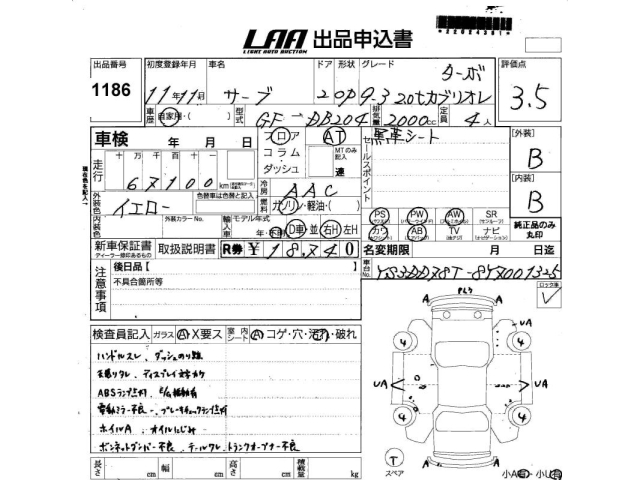 LAA 出品申込書
LIGHT AUTO AUCTION
出品番号 初度登録年月 車名 ドア 形状 グレード ターボ 評価点
1186 11年11月 サーブ 2 OP 9-3 2.0tカブリオレ 3.5
車歴 自家用・( ) 型式 GF-DB204 排気量 2000cc 定員 4人
車検 年 月 日 フロア AT 黒革シート [外装]
走行 十万千百十 コラム MTのみ記入 セールスポイント B
67100 km ダッシュ 速
外装色 色替車は色替と記入 冷房 AAC [内装]
イエロー 燃料 ガソリン・軽油・( ) B
内装色 外装カラーNo. 輸入車 モデル年式 PS PW AW SR
年 D車 並 右H 左H カワ AB TV ナビ 純正品のみ丸印
新車保証書 取扱説明書 R券 ¥ 18,740 名変期限 月 日迄
ディーラー捺印あるもの 車台No. YS3DD78T-8Y7001325
注意事項 後日品【 】 ロック車
不具合箇所等
検査員記入 ガラス A・X要ス 室内シート A コゲ・穴・汚れ・破れ
ハンドルスレ、ダッシュのり跡
天張りタレ、ディスプレイ文字カケ
ABSランプ点灯、E/G振動有
電動ミラー不良、ブレーキチェックランプ点灯
ホイルA、オイルにじみ
ボンネットダンパー不良、テールワレ、トランクオープナー不良
長さ cm 幅 cm 高さ cm 積載量 kg
A A
UA
4 4
UA UA
4 4
A A
T
スペア